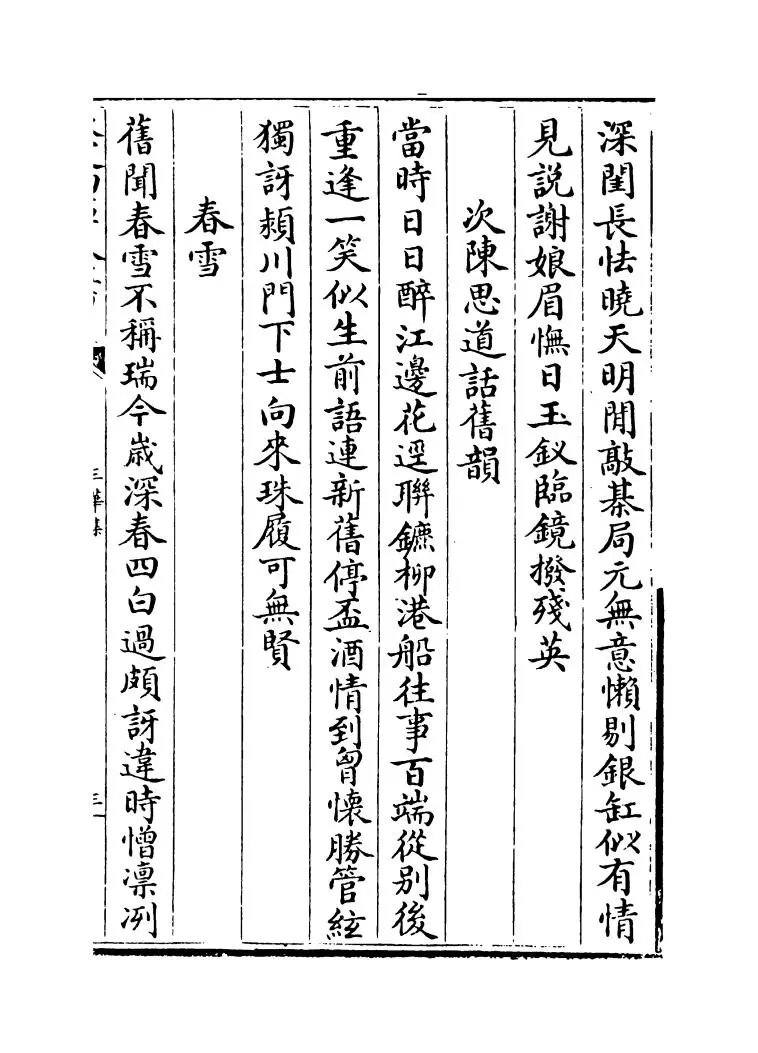 深閨長怯曉天明閒敲棊局元無意懶剔銀缸似有情
見説謝娘眉憮日玉釵臨鏡撥殘英
次陳思道話舊韻
當時日日醉江邊花逕聯鑣栁港船往事百端從别後
重逢一笑似生前語連新舊停盃酒情到胷懐勝管絃
獨訝潁川門下士向來珠履可無賢
春雪
舊聞春雪不稱瑞今歳深春四白過頗訝違時憎凛冽
三華集